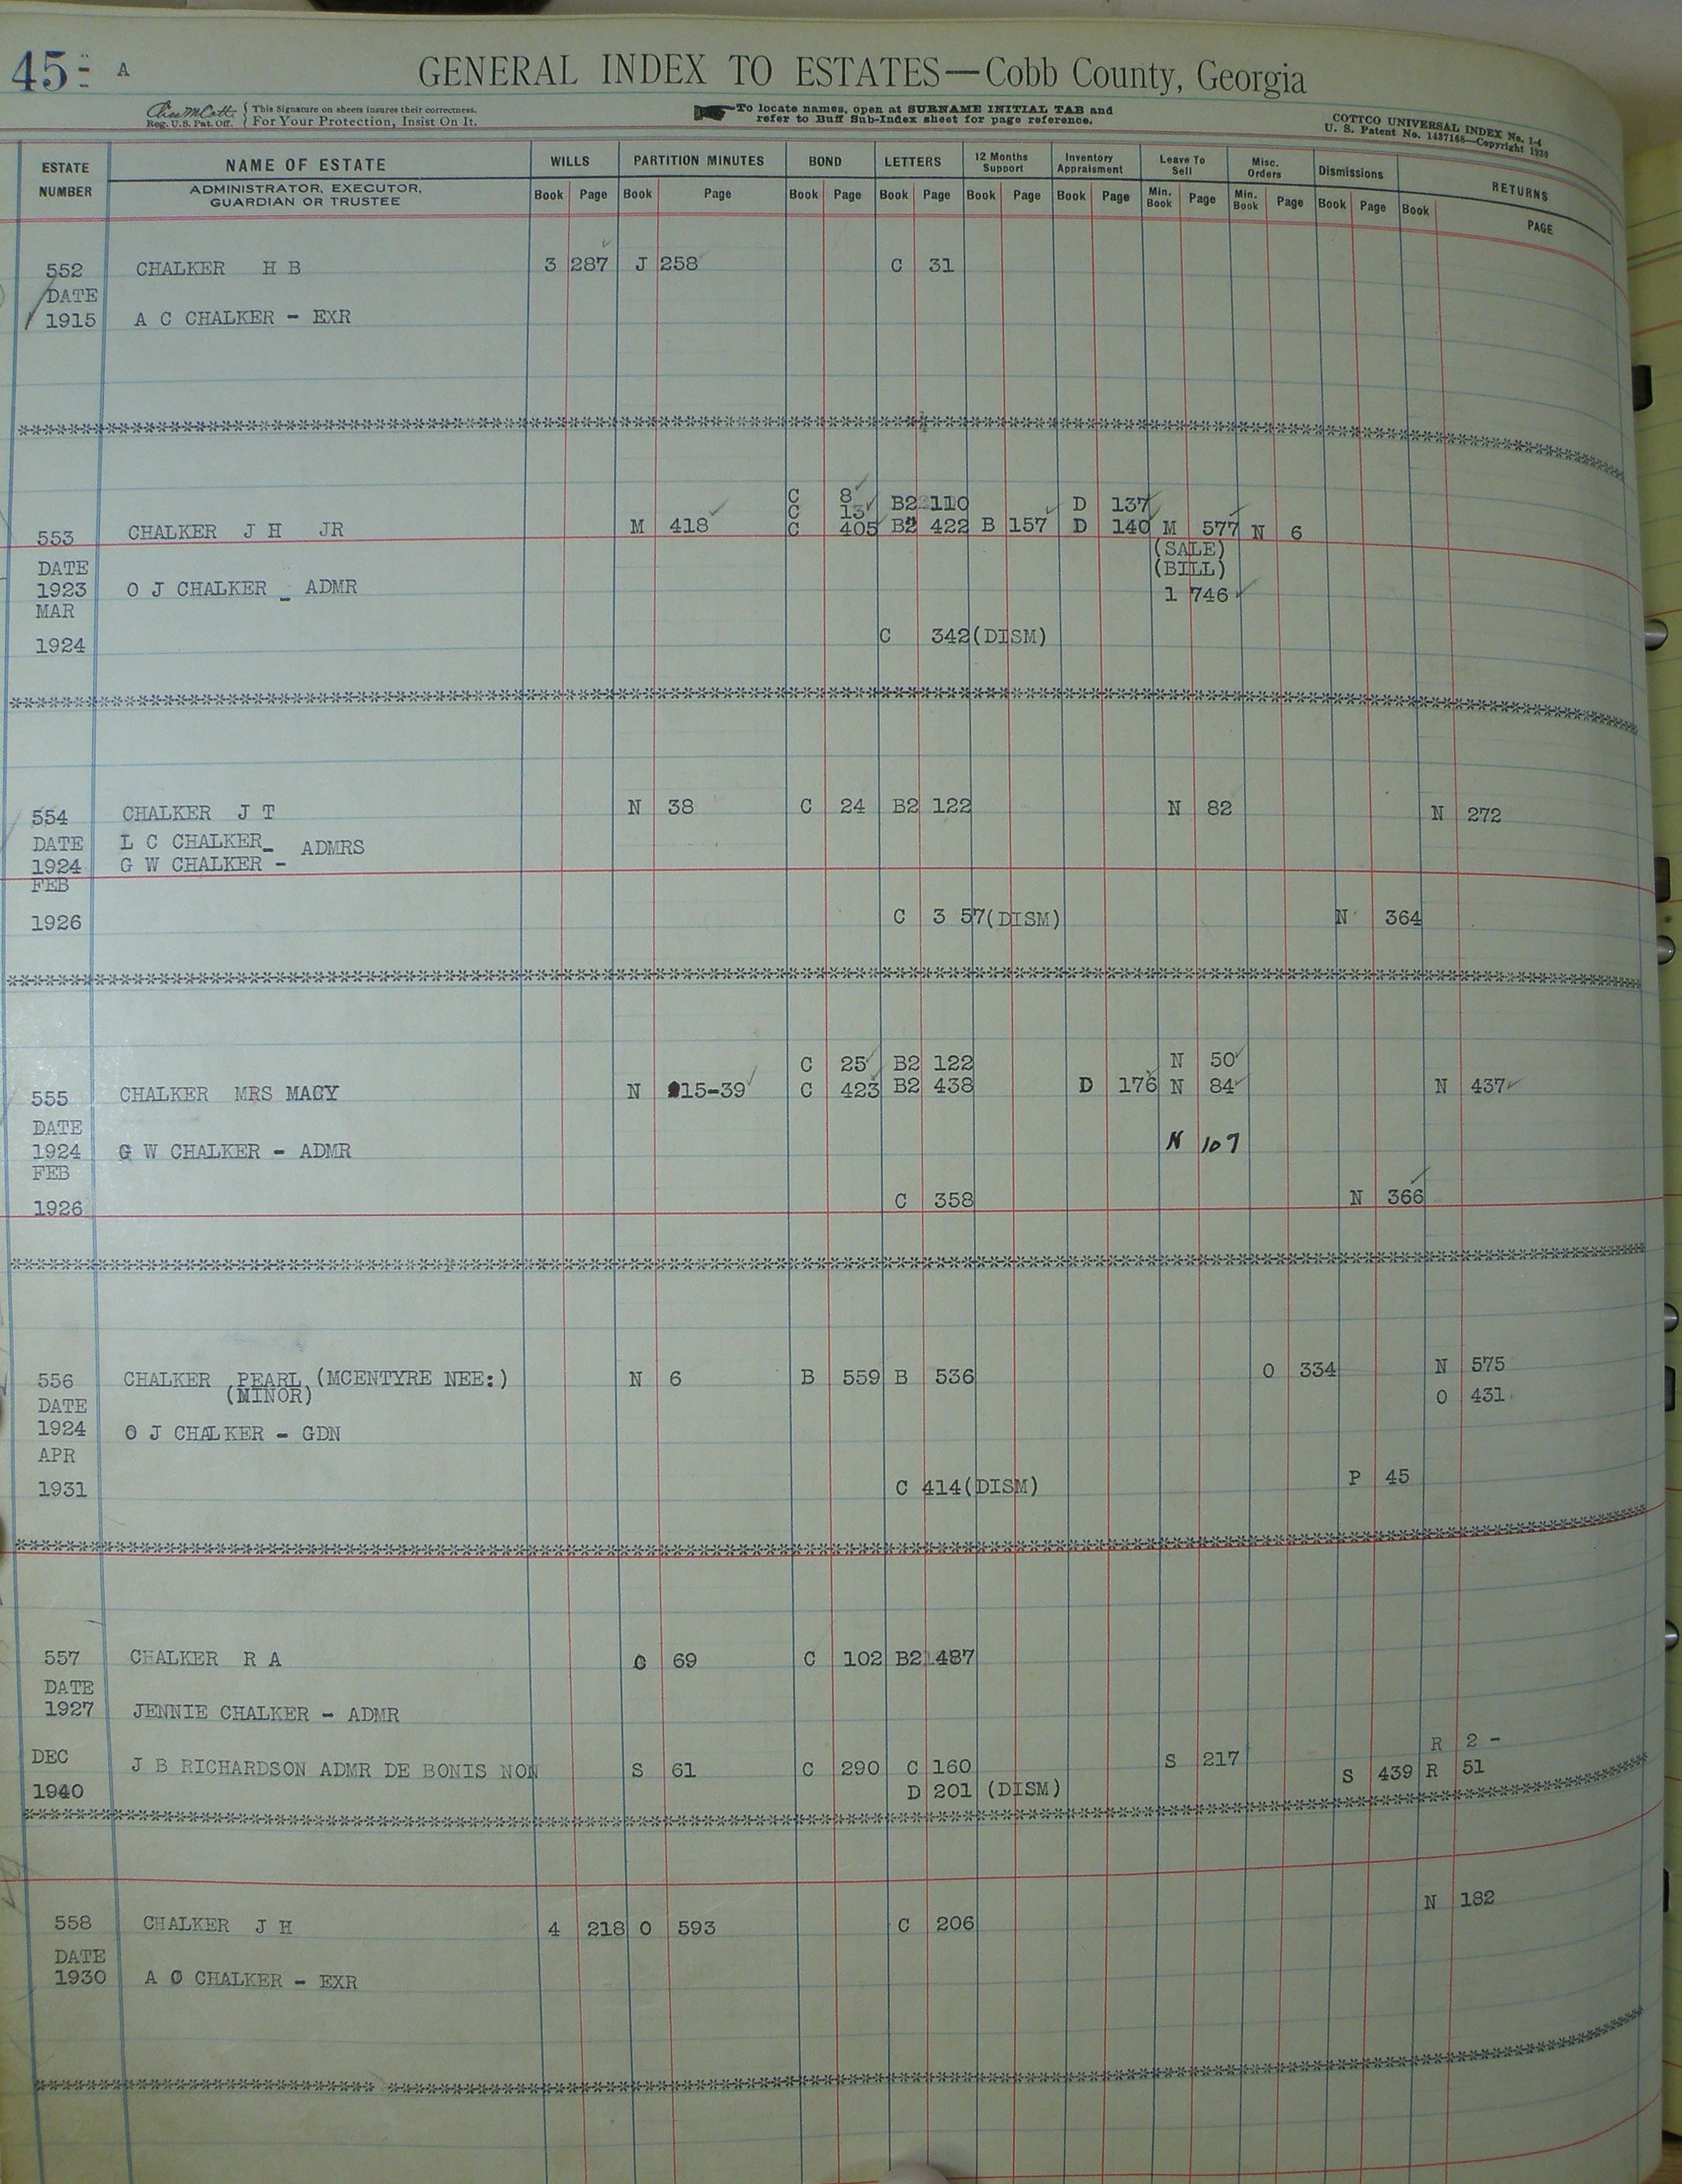 45 - A
GENERAL INDEX TO ESTATES—Cobb County, Georgia
Reg. U.S. Pat. Off. { This Signature on sheets insures their correctness.
For Your Protection, Insist On It.
To locate names, open at SURNAME INITIAL TAB and
refer to Buff Sub-Index sheet for page reference.
COTTCO UNIVERSAL INDEX No. 1-4
U. S. Patent No. 1437168—Copyright 1930
ESTATE NUMBER NAME OF ESTATE WILLS PARTITION MINUTES BOND LETTERS 12 Months Support Inventory Appraisment Leave To Sell Misc. Orders Dismissions RETURNS
ADMINISTRATOR, EXECUTOR, GUARDIAN OR TRUSTEE Book Page Book Page Book Page Book Page Book Page Book Page Min. Book Page Min. Book Page Book Page Book PAGE
552 CHALKER H B 3 287 J 258 C 31
DATE
1915 A C CHALKER - EXR
C 8 B2 110 D 137
C 13
553 CHALKER J H JR M 418 C 405 B2 422 B 157 D 140 M 577 N 6
(SALE)
DATE (BILL)
1923 O J CHALKER - ADMR 1 746
MAR
1924 C 342(DISM)
554 CHALKER J T N 38 C 24 B2 122 N 82 N 272
DATE L C CHALKER- ADMRS
1924 G W CHALKER -
FEB
1926 C 3 57(DISM) N 364
C 25 B2 122 N 50
555 CHALKER MRS MACY N 15-39 C 423 B2 438 D 176 N 84 N 437
DATE
1924 G W CHALKER - ADMR N 107
FEB
1926 C 358 N 366
556 CHALKER PEARL (MCENTYRE NEE:) N 6 B 559 B 536 O 334 N 575
DATE (MINOR) O 431
1924 O J CHALKER - GDN
APR
1931 C 414(DISM) P 45
557 CHALKER R A O 69 C 102 B2 487
DATE
1927 JENNIE CHALKER - ADMR
R 2 -
DEC J B RICHARDSON ADMR DE BONIS NON S 61 C 290 C 160 S 217 S 439 R 51
1940 D 201 (DISM)
N 182
558 CHALKER J H 4 218 O 593 C 206
DATE
1930 A O CHALKER - EXR